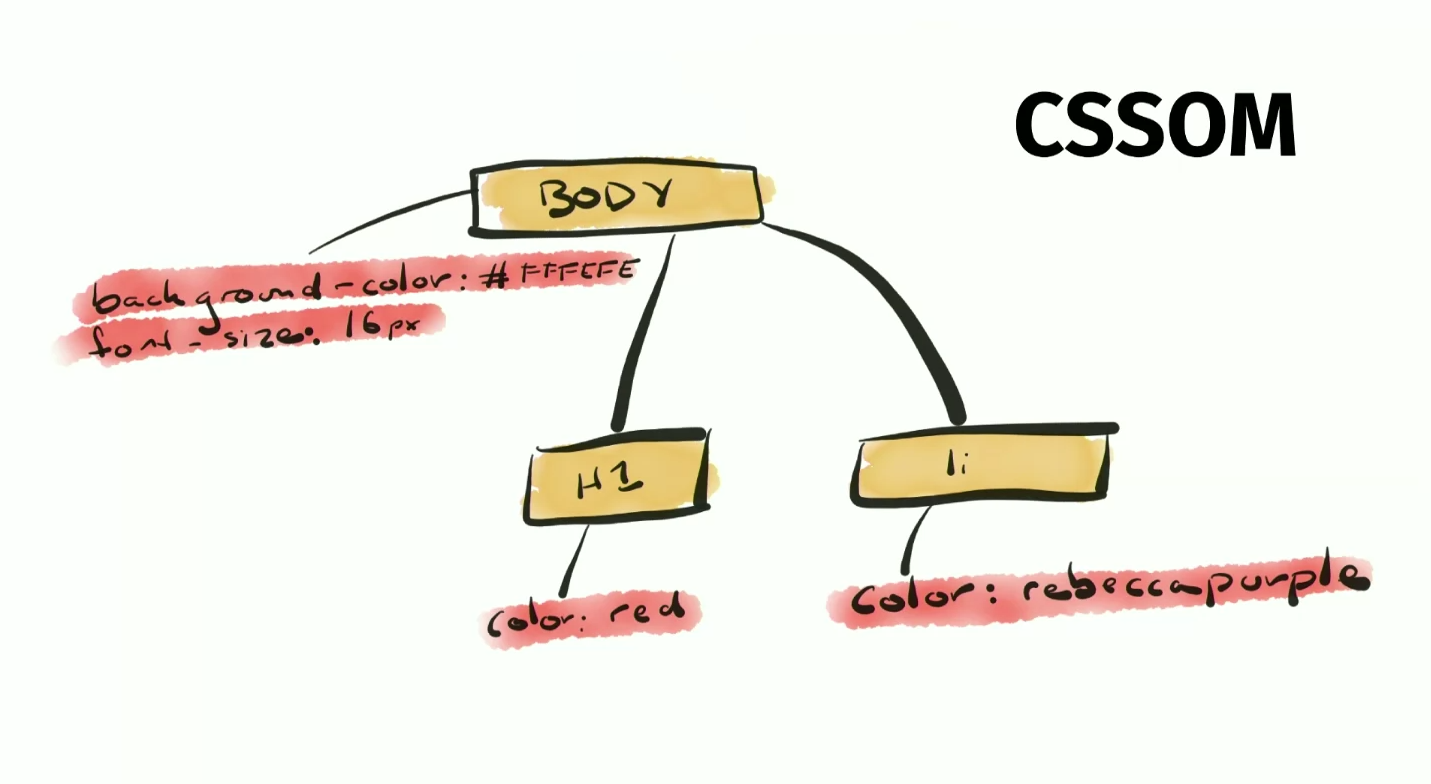 CSSOM
BODY
background-color: #FFFEFE
font-size: 16px
H1
li
color: red
color: rebeccapurple